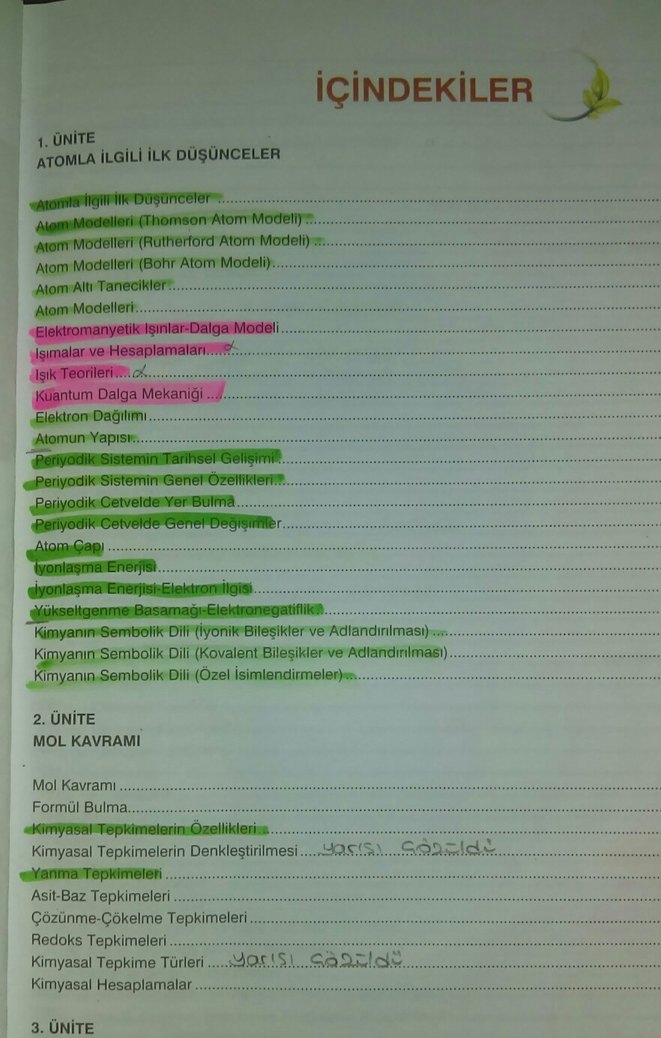 İÇİNDEKİLER
1. ÜNİTE
ATOMLA İLGİLİ İLK DÜŞÜNCELER
Atomla İlgili İlk Düşünceler
Atom Modelleri (Thomson Atom Modeli)
Atom Modelleri (Rutherford Atom Modeli)
Atom Modelleri (Bohr Atom Modeli)
Atom Altı Tanecikler
Atom Modelleri
Elektromanyetik Işınlar-Dalga Modeli
Işımalar ve Hesaplamaları
Işık Teorileri
Kuantum Dalga Mekaniği
Elektron Dağılımı
Atomun Yapısı
Periyodik Sistemin Tarihsel Gelişimi
Periyodik Sistemin Genel Özellikleri
Periyodik Cetvelde Yer Bulma
Periyodik Cetvelde Genel Değişimler
Atom Çapı
İyonlaşma Enerjisi
İyonlaşma Enerjisi-Elektron İlgisi
Yükseltgenme Basamağı-Elektronegatiflik
Kimyanın Sembolik Dili (İyonik Bileşikler ve Adlandırılması)
Kimyanın Sembolik Dili (Kovalent Bileşikler ve Adlandırılması)
Kimyanın Sembolik Dili (Özel İsimlendirmeler)
2. ÜNİTE
MOL KAVRAMI
Mol Kavramı
Formül Bulma
Kimyasal Tepkimelerin Özellikleri
Kimyasal Tepkimelerin Denkleştirilmesi yarısı çözüldü
Yanma Tepkimeleri
Asit-Baz Tepkimeleri
Çözünme-Çökelme Tepkimeleri
Redoks Tepkimeleri
Kimyasal Tepkime Türleri yarısı çözüldü
Kimyasal Hesaplamalar
3. ÜNİTE